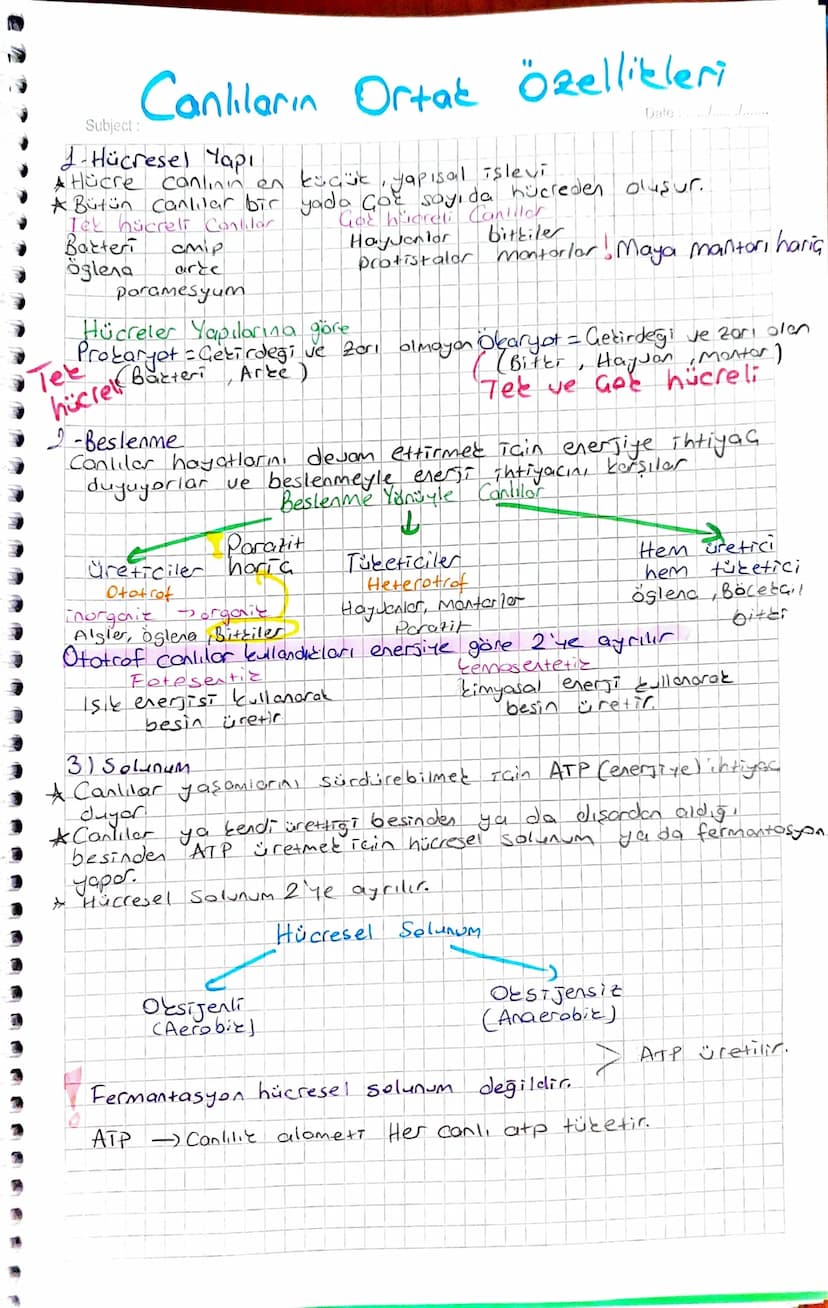 Canlıların Ortak Özellikleri
Subject :
Date : ....../....../......
1-Hücresel Yapı
★Hücre canlının en küçük, yapısal işlevi
★Bütün canlılar bir yada çok sayıda hücreden oluşur.
Tek hücreli Canlılar
Çok hücreli Canlılar
Bakteri amip
Öglena arke
paramesyum
Hayvanlar bitkiler
protistalar mantarlar ! Maya mantarı hariç
Hücreler Yapılarına göre
Prokaryot = Çekirdeği ve zarı olmayan
(Bakteri, Arke)
Tek hücreli
Ökaryot = Çekirdeği ve zarı olan
(Bitki, Hayvan, Mantar)
Tek ve Çok hücreli
2-Beslenme
Canlılar hayatlarını devam ettirmek için enerjiye ihtiyaç
duyuyorlar ve beslenmeyle enerji ihtiyacını karşılar
Beslenme Yönüyle Canlılar
Üreticiler
Ototrof
inorganik → organik
Algler, öglena, Bitkiler
! Parazit
hariç
Tüketiciler
Heterotrof
Hayvanlar, Mantarlar
Parazit
Hem üretici
hem tüketici
öglena, Böcekçil
bitki
Ototrof canlılar kullandıkları enerjiye göre 2'ye ayrılır
Fotosentiz
Işık enerjisi kullanarak
besin üretir
kemosentetiz
kimyasal enerji kullanarak
besin üretir.
3) Solunum
★ Canlılar yaşamlarını sürdürebilmek için ATP (enerjiye) ihtiyaç
duyar.
★Canlılar ya kendi ürettiği besinden ya da dışardan aldığı
besinden ATP üretmek için hücresel solunum ya da fermantosyon
yapar.
★ Hücresel Solunum 2'ye ayrılır.
Hücresel Solunum
Oksijenli
(Aerobik)
Oksijensiz
(Anaerobik)
> ATP üretilir.
! Fermantasyon hücresel solunum değildir.
ATP → Canlılık alameti Her canlı atp tüketir.